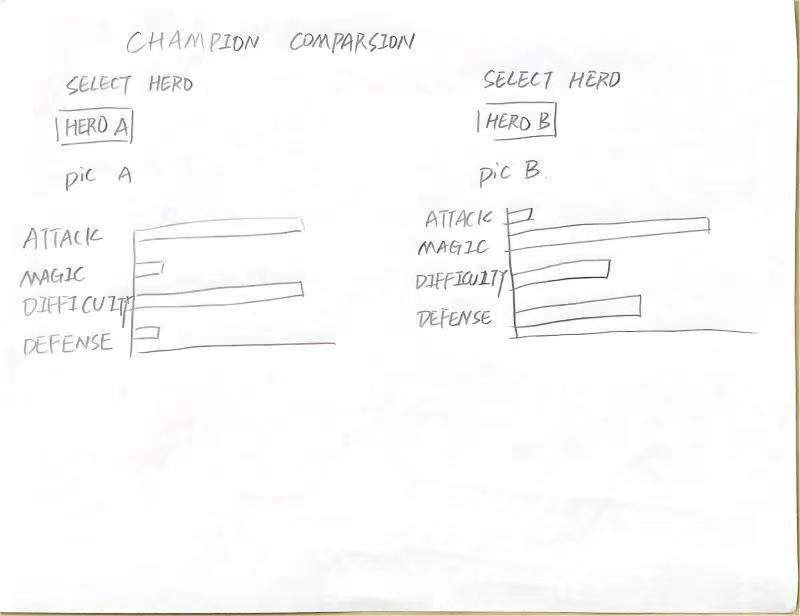 CHAMPION COMPARSION
SELECT HERO
HERO A
pic A
ATTACK
MAGIC
DIFFICUITY
DEFENSE
SELECT HERO
HERO B
pic B.
ATTACK
MAGIC
DIFFICUITY
DEFENSE